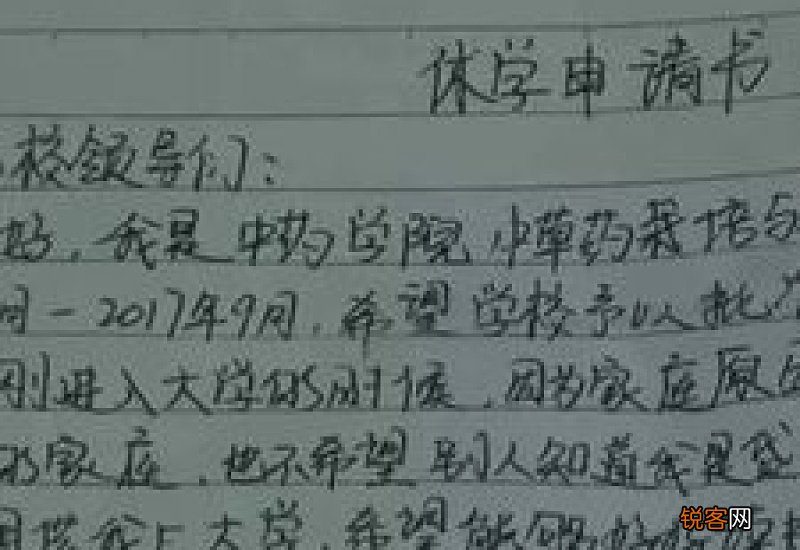 休学申请书
校领导们:
好,我是中药学院中草药栽培与
月-2017年9月,希望学校予以批准
刚进入大学的时候,因为家庭原因
的家庭,也不希望别人知道我是
我上大学,希望能够
锐客网